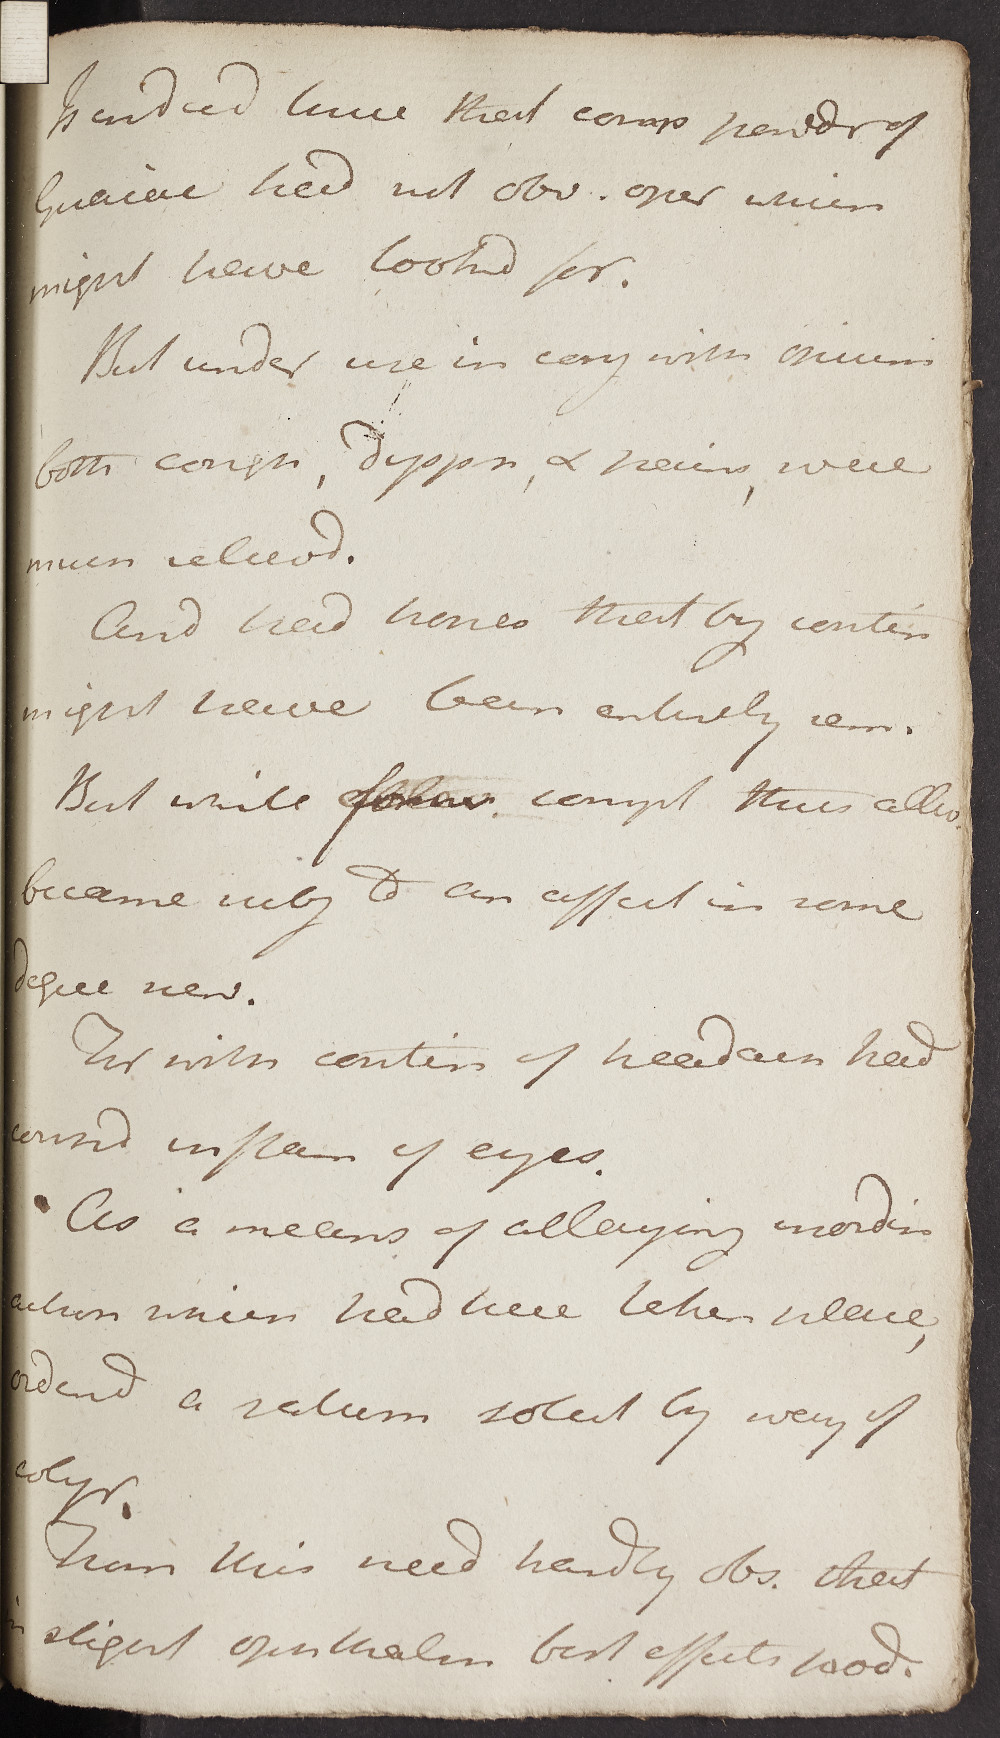 Indeed here that comp powdr of
Guaiac had not obv. oper which
might have lookd for.
But under use in conj with opium
both cough, dyspn, & pains, were
much relievd.
And had hopes that by contin
might have been entirely rem.
But while compl thus allev.
became subj to an affect in some
degree new.
For with contin of headach had
considd inflam of eyes.
As a means of allaying inordin
action which had here taken place,
orderd a saturn solut by way of
colyr.
From this need hardly obs. that
in slight ophthalm best effects prod.